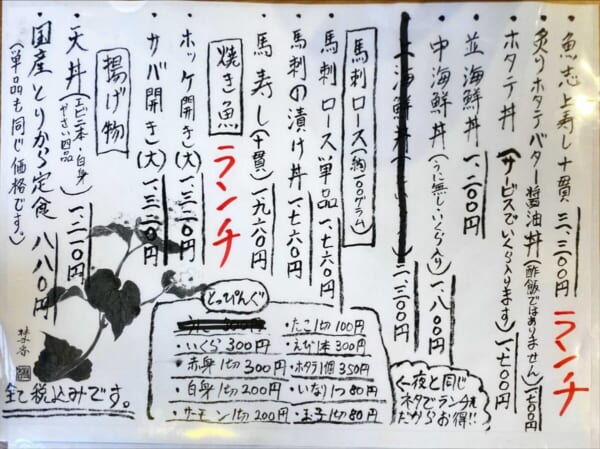 ・魚志上寿し十貫 三、三〇〇円
・炙りホタテバター醤油丼(酢飯ではありません)一、七〇〇円
ランチ
・ホタテ丼(サービスでいくら入ります)一、七〇〇円
・並海鮮丼 一、二〇〇円
・中海鮮丼(うに無し・いくら入り)一、八〇〇円
上海鮮丼 二、三〇〇円
馬刺ロース(約一〇〇グラム)
・馬刺ロース単品 一、七六〇円
・馬刺の漬け丼 一、七六〇円
・馬寿し(十貫)一、九八〇円
焼き魚
ランチ
・ホッケ開き(大)一、三二〇円
・サバ開き(大)一、三二〇円
揚げ物
・天丼(エビ二本・白身 やさい四品)一、二一〇円
・国産とりから定食 八八〇円
(単品も同じ価格です。)
全て税込みです。
とっぴんぐ
うに 300円
・いくら 300円
・赤身1切 300円
・白身1切 200円
・サーモン1切 200円
・たこ1切 100円
・えび1本 300円
・ホタテ1個 350円
・いなり1つ 80円
・玉子1切 80円
←夜と同じ
ネタでランチは
だからお得!!